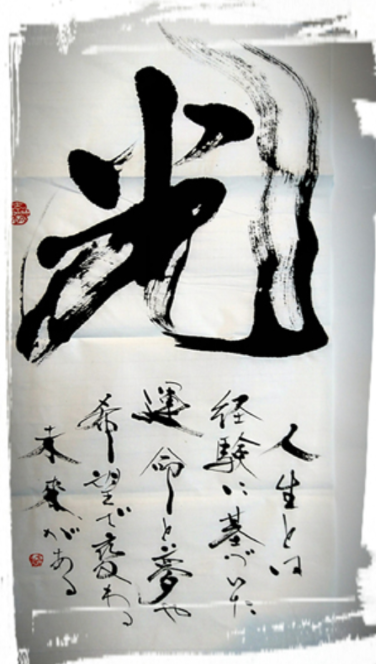 光
人生とは
経験に基づいた
運命と夢や
希望で変わる
未来がある